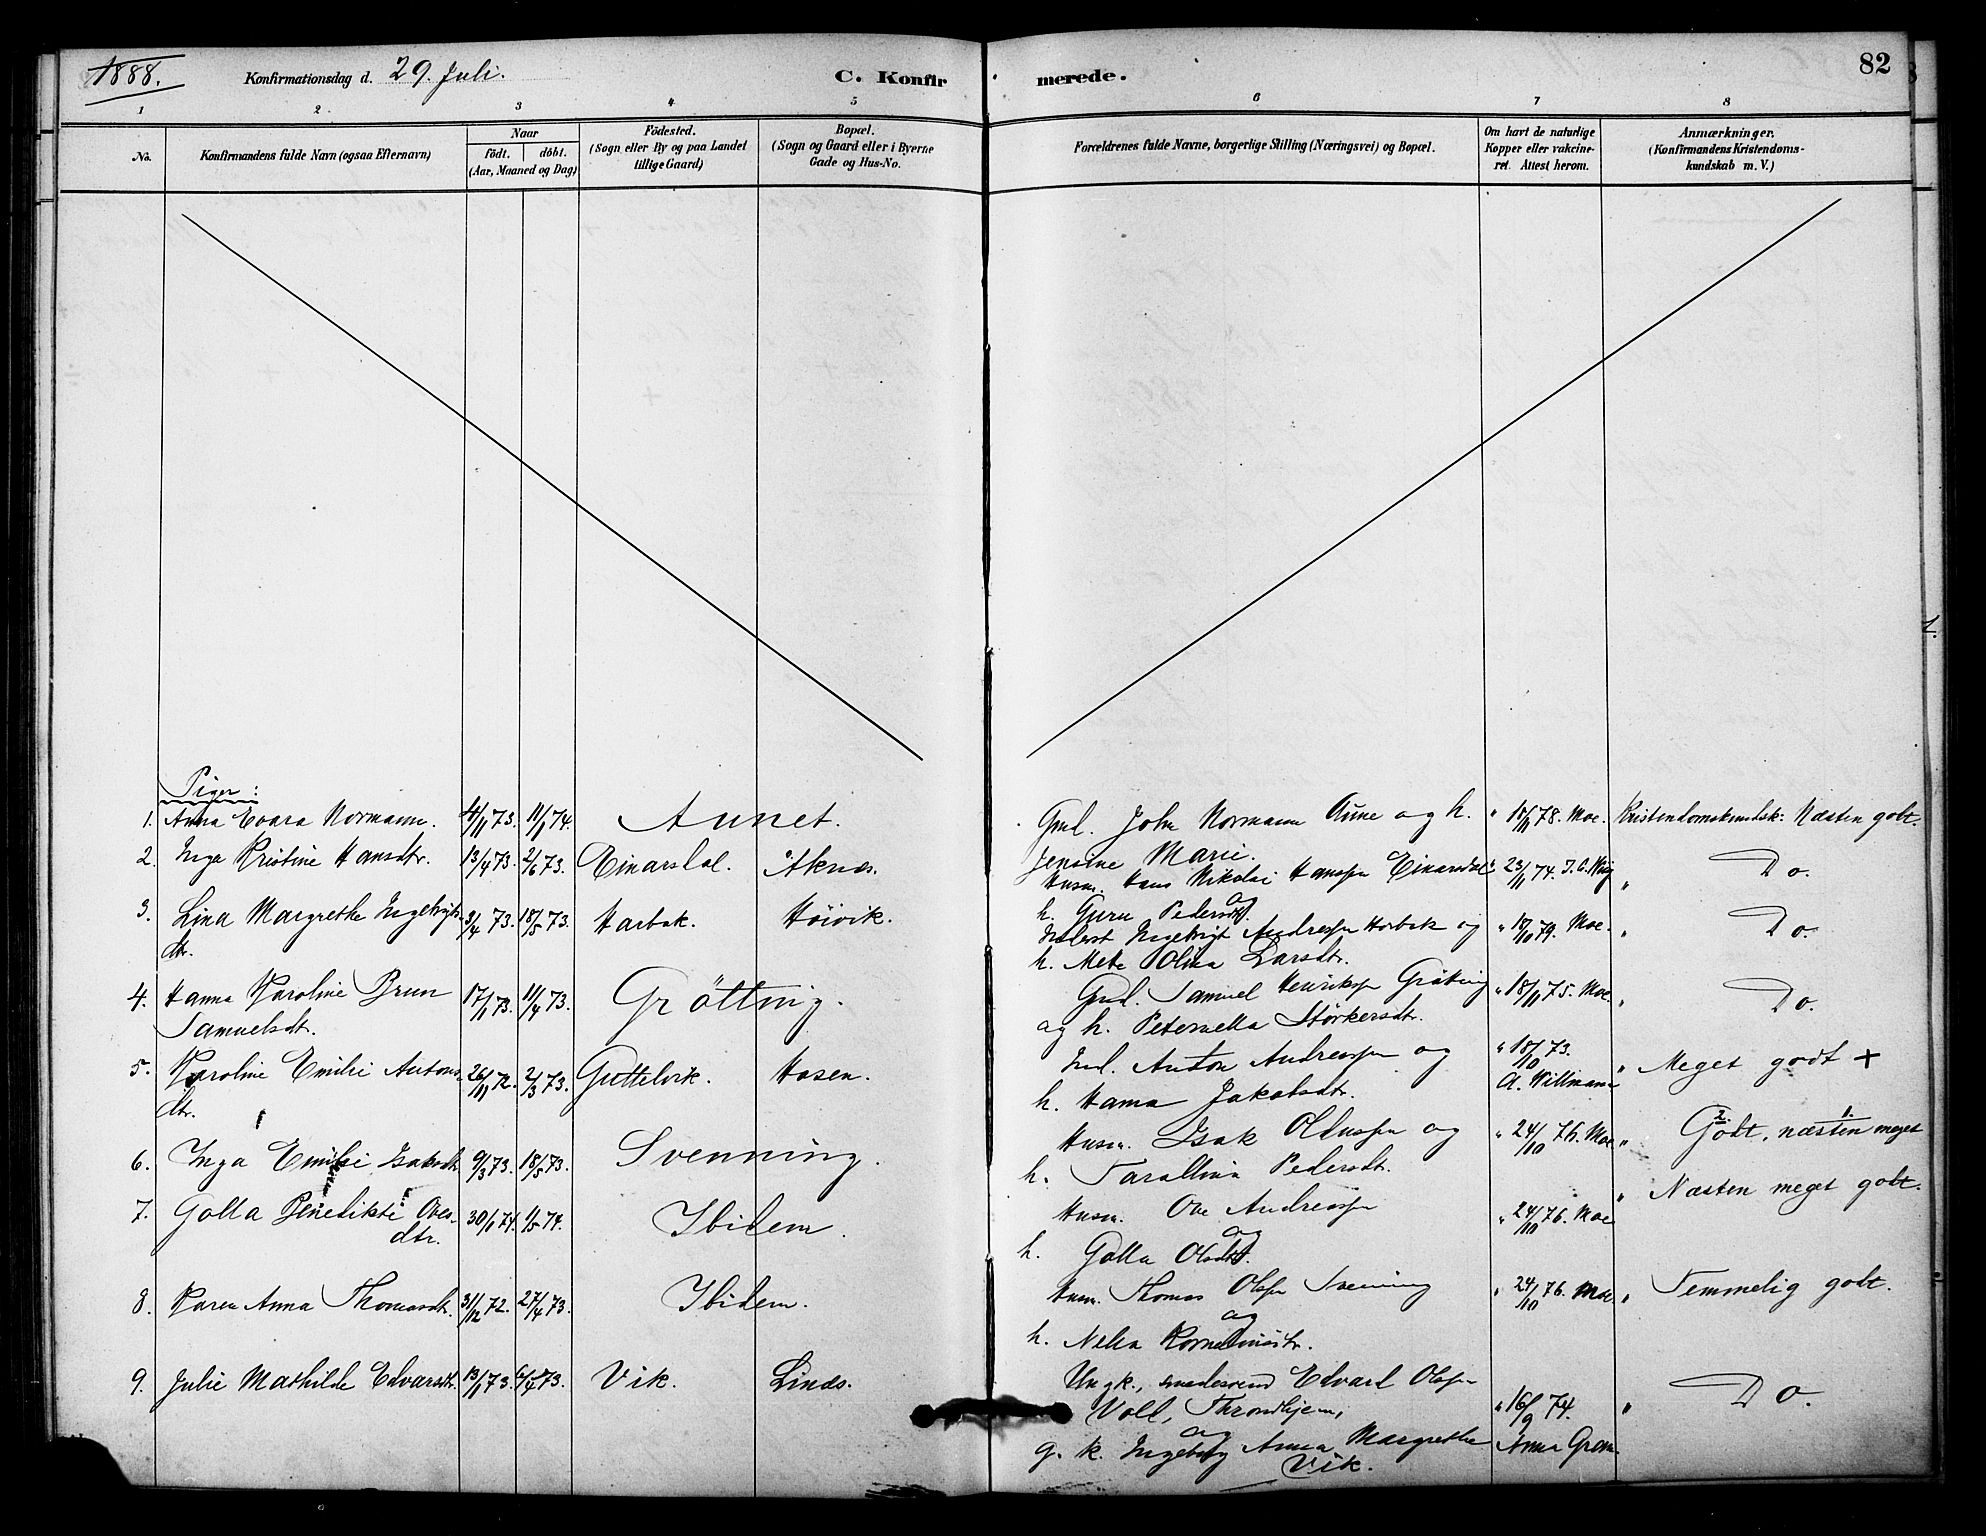 1888.
Konfirmationsdag d. 29. Juli.
C. Konfir
merede.
82
1 2 3 4 5 6 7 8
No.
Konfirmandens fulde Navn (ogsaa Efternavn)
Naar
födt. döbt.
(Aar, Maaned og Dag)
Födested.
(Sogn eller By og paa Landet
tillige Gaard)
Bopæl.
(Sogn og Gaard eller i Byerne
Gade og Hus-No.
Forældrenes fulde Navne, borgerlige Stilling (Næringsvei) og Bopæl.
Om havt de naturlige
Kopper eller vakcine-
ret. Attest herom.
Anmærkninger.
(Konfirmandens Kristendoms-
kundskab m. V.)
Piger:
1. Anna Evara Normann. 4/11 73. 11/1 74. Aunet. Gmd. John Normann Aune og h. " 18/11 78. Moe. Kristendomskundsk: Næsten godt.
Jensine Marie.
2. Inga Kristine Hansdtr. 13/4 73. 2/6 73. Einarsdal. Aknæs. Husm. Hans Nikolai Hanssen Einarsdal " 23/11 74. " Do.
og
h. Guru Pedersdt.
3. Lina Margrethe Ingebrigts- 3/4 73. 18/5 73. Harbak. Höivik. Inderst Ingebrigt Andressen Harbak og " 18/10 79. Moe. " Do.
dtr.
h. Mete Olina Larsdtr.
4. Hanna Karoline Brun 17/1 73. 11/4 73. Gröttnig. Gmd. Samuel Henriksen Gröttnig " 18/11 75. Moe. " Do.
Samuelsdt.
og h. Peternella Störkersdt.
5. Karoline Emilie Antons- 26/11 72. 2/3 73. Guttelvik. Hosen. Ind. Anton Andreassen og " 18/10 73. " Meget godt +
dtr.
h. Hanna Jakobsdtr. A. Willmann
6. Inga Emilie Isaksdt. 9/3 73. 18/5 73. Svenning. Husm. Isak Oldussen og " 24/10 76. Moe " Godt, næsten meget
2. 1.
h. Tarallina Pedersdt.
7. Golla Benedikte Oves- 30/1 74. 1/5 74. Ibidem. Husm. Ove Andreassen " 24/10 76. Moe " Næsten meget godt.
dtr.
og
h. Golla Olsdt.
8. Karen Anna Thomasdt. 31/12 72. 27/4 73. Ibidem. Husm. Thomas Olsen Svenning " 24/10 76. Moe " Temmelig godt.
og
h. Nelia Korneliusdtr.
9. Julie Mathilde Edvarsdt. 13/1 73. 6/4 73. Vik. Linds. Ungk., smedesvend Edvard Olsen
Voll, Throndhjem, " 16/9 74. " Do.
og
g. k. Ingeborg Anna Margrethe Anna Gram
Vik.